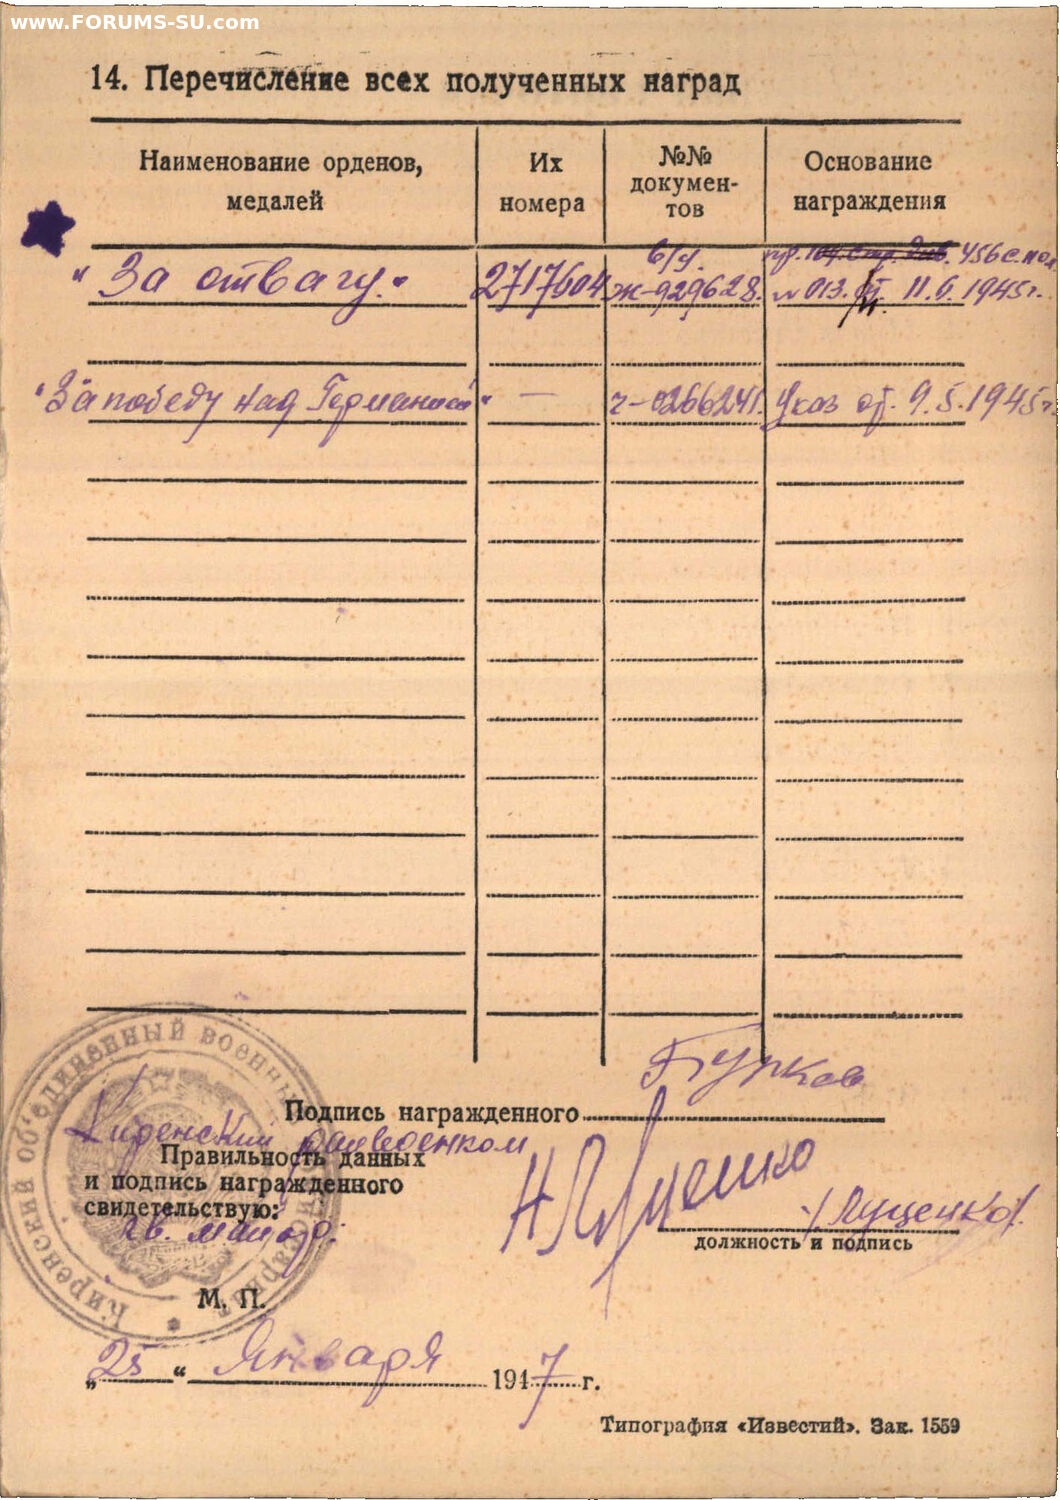 www.FORUMS-SU.com
14. Перечисление всех полученных наград
Наименование орденов, медалей
Их номера
№№ докумен-тов
Основание награждения
"За отвагу."
2717604
б/у. Ж-929628.
пр. 104 стр. див. 456 с. пол
№ 013. от 11.6.1945 г.
"За победу над Германией"
—
Ч-0266241.
Указ от. 9.5.1945 г.
Подпись награжденного
Бурков
Киренский райвоенком
Правильность данных
и подпись награжденного
свидетельствую:
гв. майор:
/Луценко/.
должность и подпись
Киренский об'единенный военный комиссариат
М. П.
„25“ Января 1947 г.
Типография «Известий». Зак. 1559